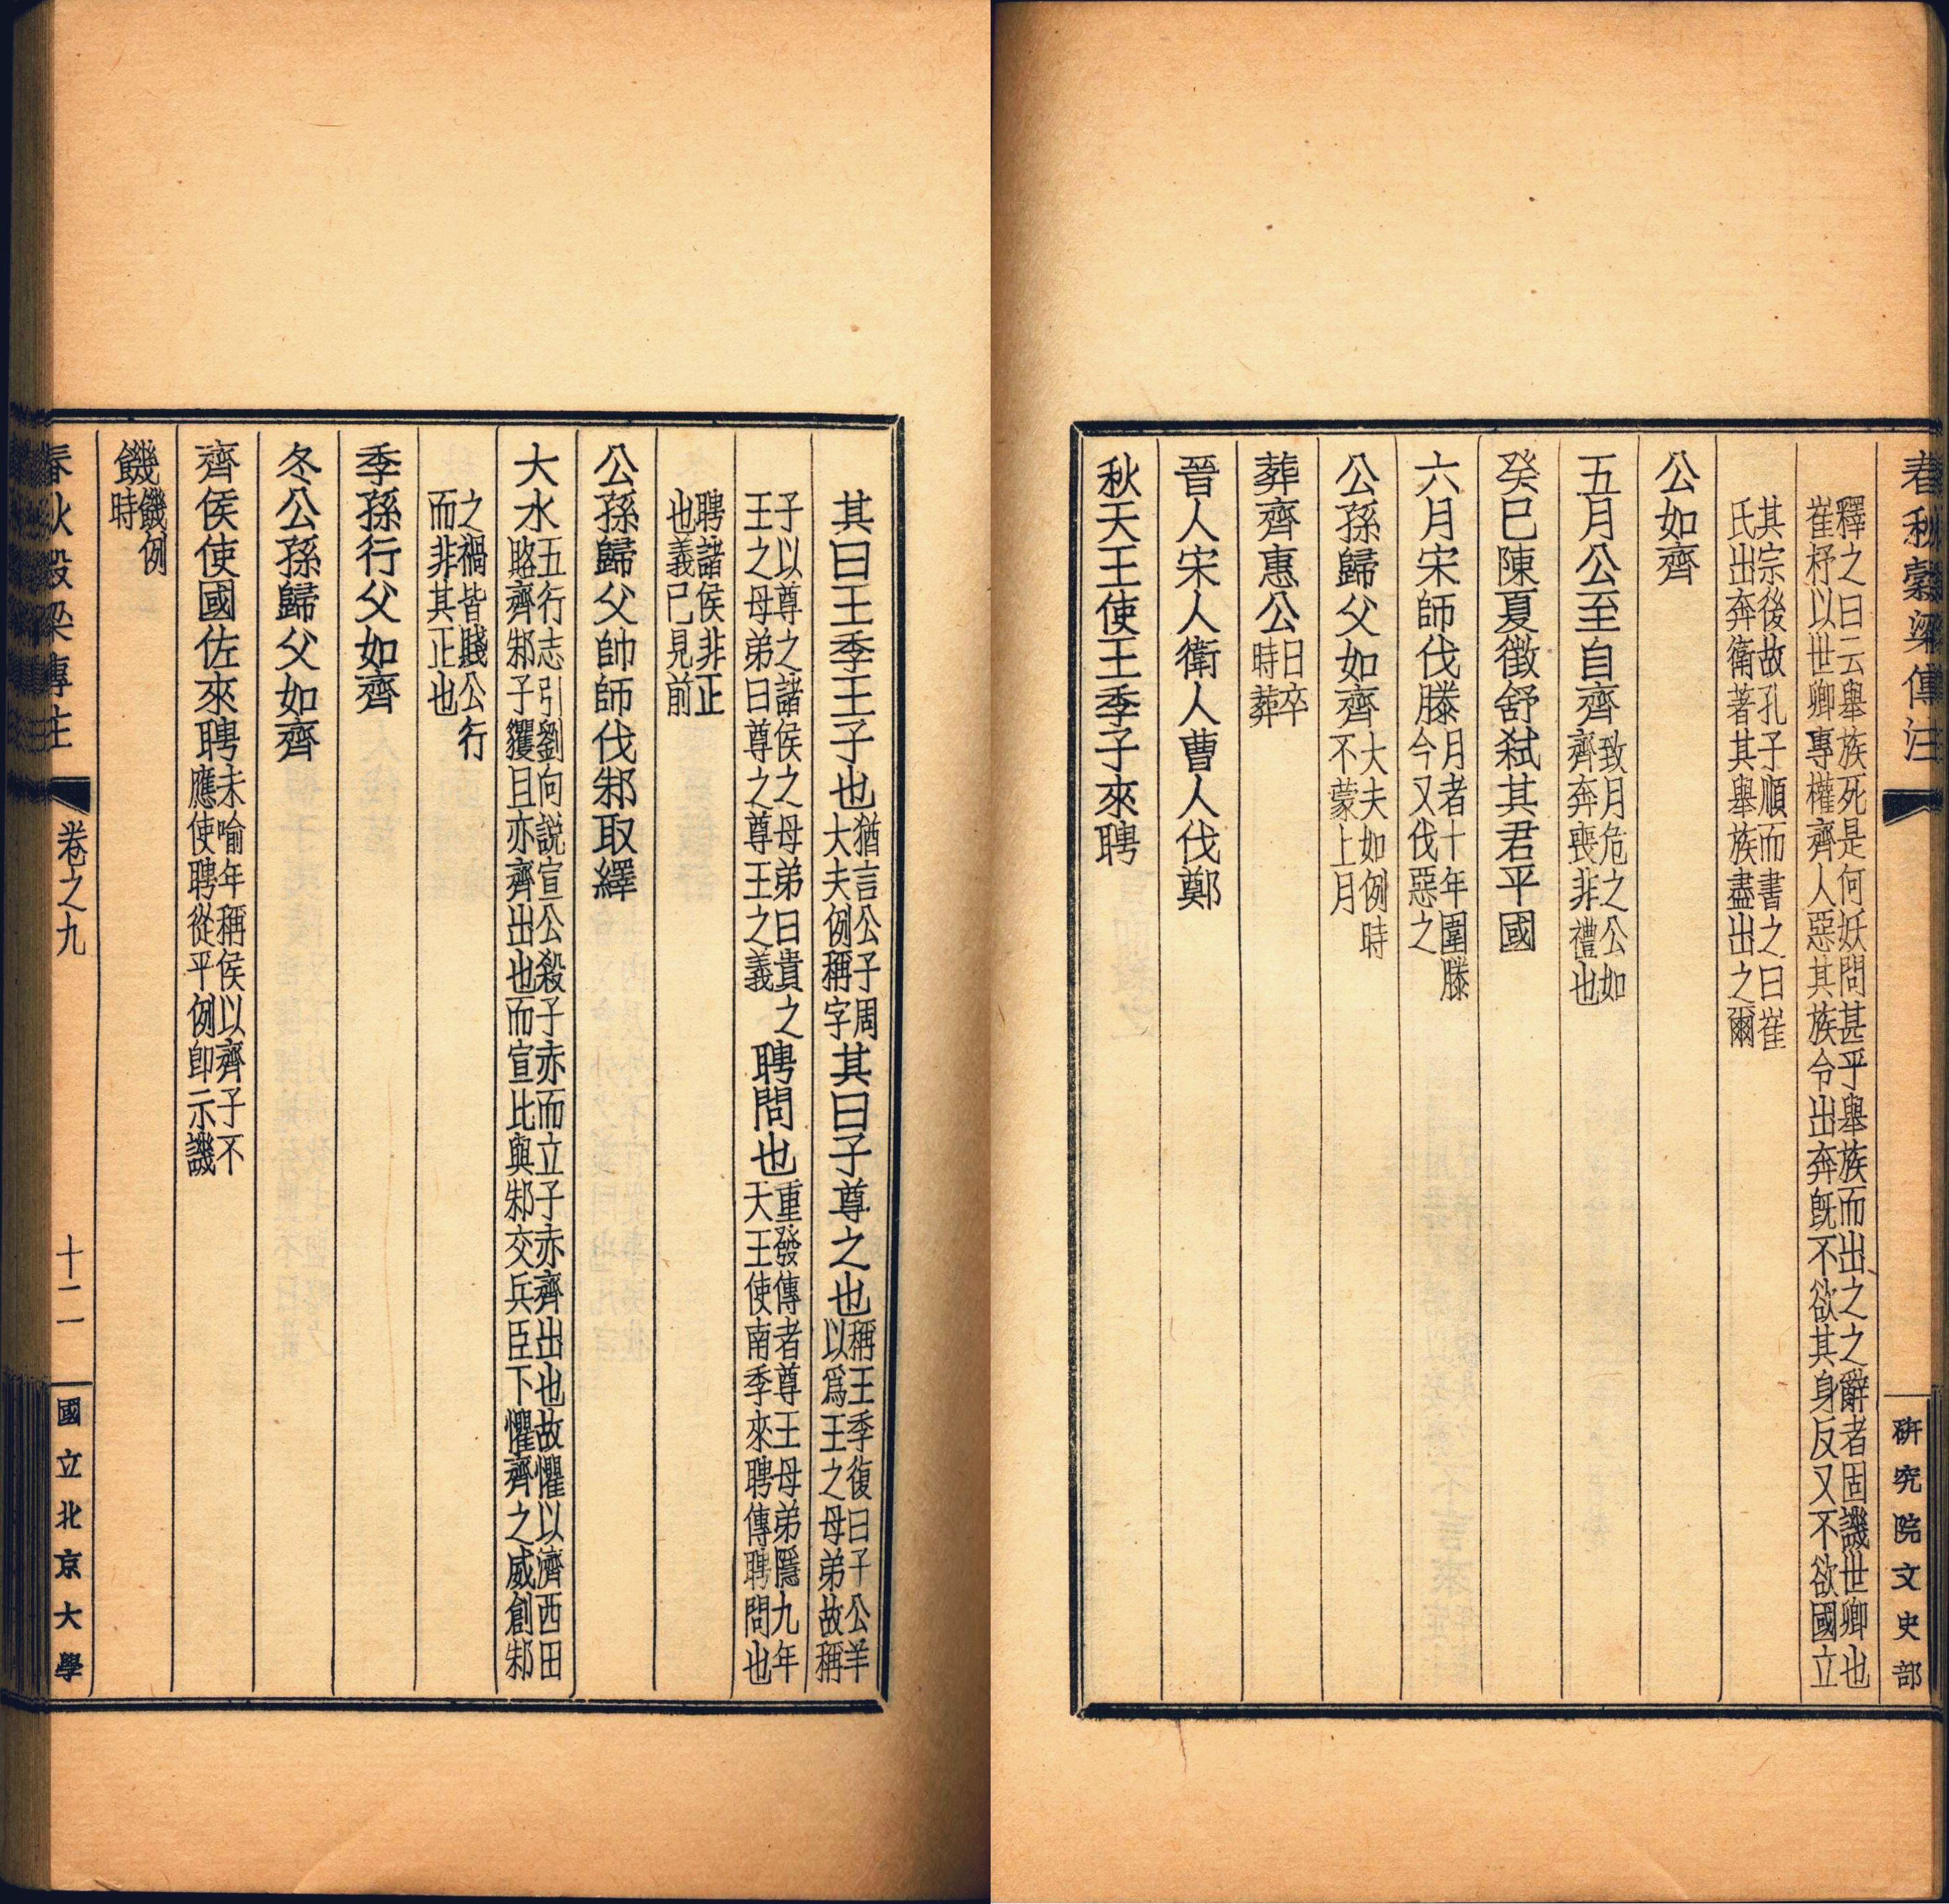 春秋穀梁傳注
研究院文史部
釋之曰云舉族死是何妖問甚乎舉族而出之之辭者固譏世卿也
崔杼以世卿專權齊人惡其族令出奔既不欲其身反又不欲國立
其宗後故孔子順而書之曰崔
氏出奔衛著其舉族盡出之爾
公如齊
五月公至自齊致月危之公如
齊奔喪非禮也
癸巳陳夏徵舒弒其君平國
六月宋師伐滕月者十年圍滕
今又伐惡之
公孫歸父如齊大夫如例時
不蒙上月
葬齊惠公日卒
時葬
晉人宋人衛人曹人伐鄭
秋天王使王季子來聘
其曰王季王子也猶言公子周
大夫例稱字
其曰子尊之也稱王季復曰子公羊
以爲王之母弟故稱
子以尊之諸侯之母弟曰貴之
王之母弟曰尊之尊王之義
聘問也重發傳者尊王母弟隱九年
天王使南季來聘傳聘問也
聘諸侯非正
也義已見前
公孫歸父帥師伐邾取繹
大水五行志引劉向説宣公殺子赤而立子赤齊出也故懼以濟西田
賂齊邾子貜且亦齊出也而宣比與邾交兵臣下懼齊之威創邾
之禍皆賤公行
而非其正也
季孫行父如齊
冬公孫歸父如齊
齊侯使國佐來聘未喻年稱侯以齊子不
應使聘從平例卽示譏
饑饑例
時
春秋穀梁傳注
卷之九
十二
國立北京大學